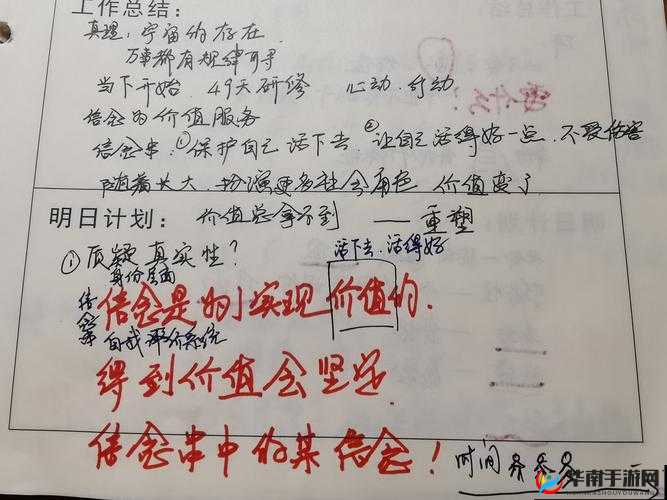 工作总结:
真理:宇宙的存在
万事都有规律可寻
当下开始 49天研修 心动.行动
信念为价值服务
信念串:①保护自己活下去 ②让自己活得好一点,不受伤害
随着长大,扮演更多社会角色 价值变了
明日计划: 价值总拿不到 —— 重塑
①质疑真实性? 活下去.活得好
身份层面
信念串
信念是为了实现价值的.
自我评价系统
得到价值会坚定
信念串中的某信念!
时间
华南手游网